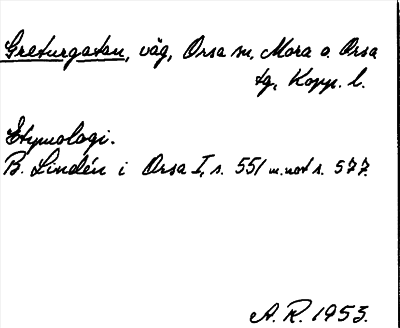 Greturgatan, väg, Orsa sn, Mora o. Orsa
tg, Kopp. l.
Etymologi.
B. Lindén i Orsa I, s. 551 m. not s. 577.
A. R. 1953.